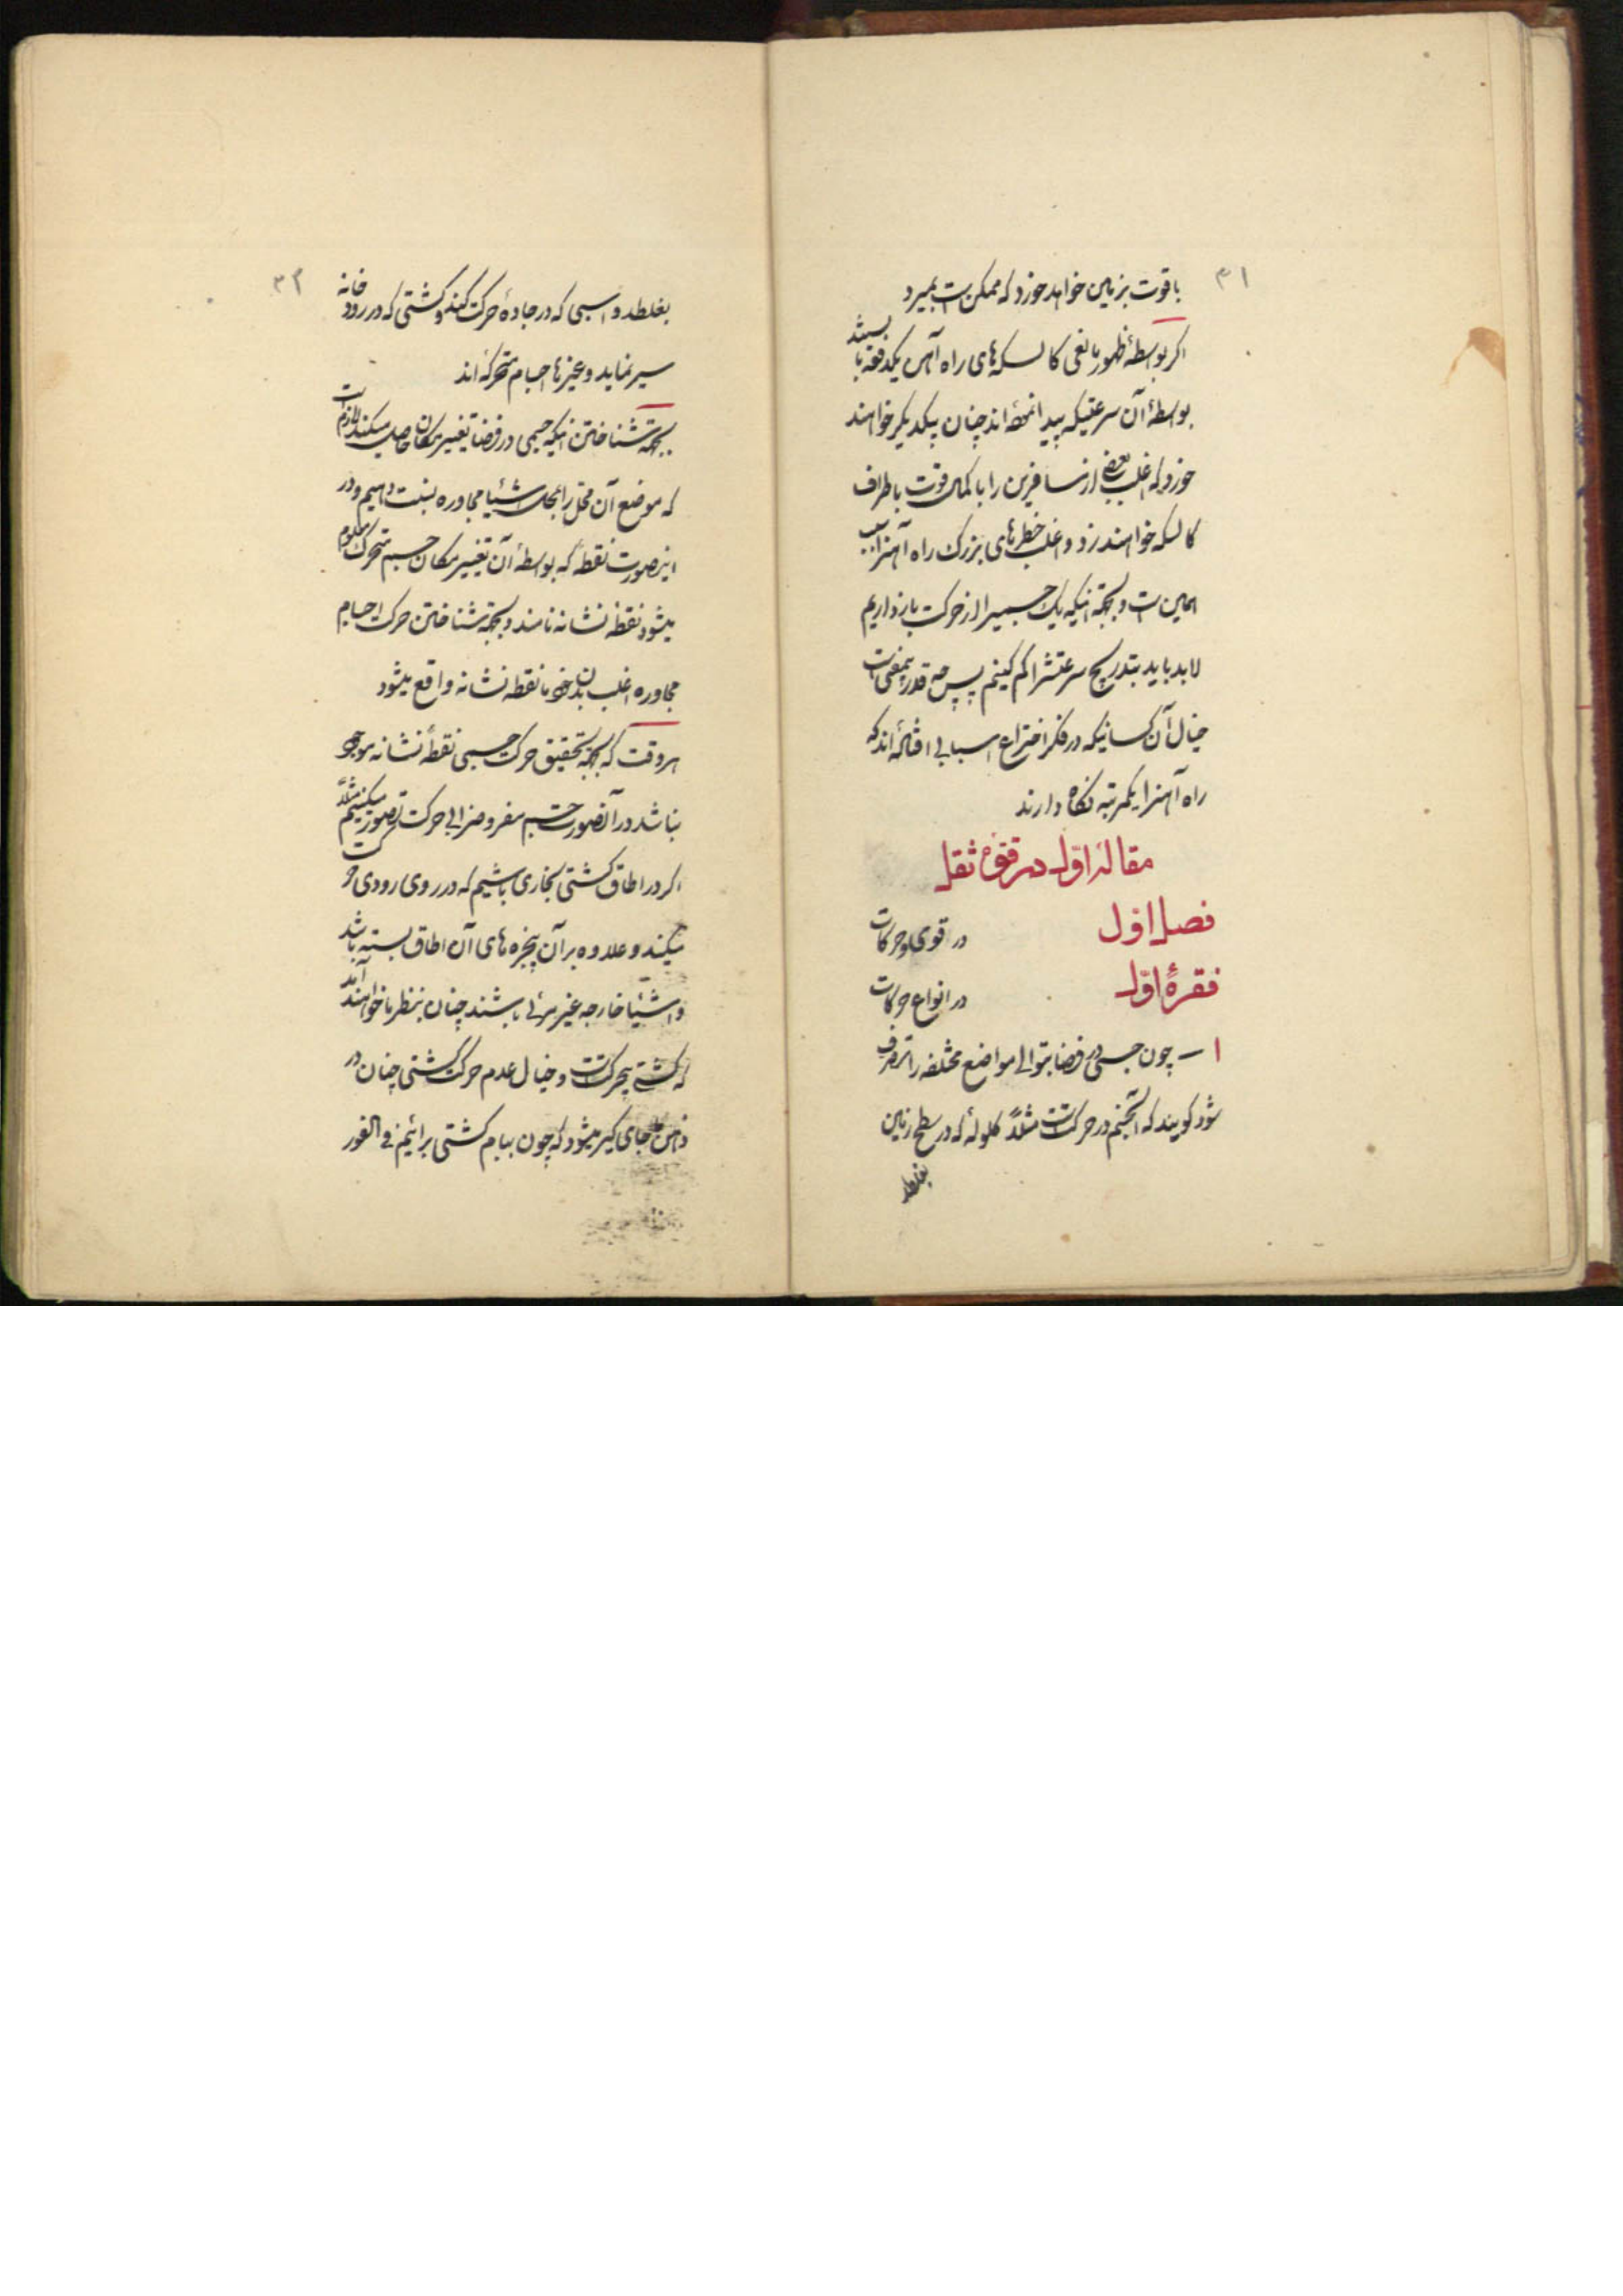 ۳۱
با قوت بزمین خواهد خورد که ممکن است بمیرد
اگر بواسطهٔ ظهور مانعی کالسکه‌های راه آهن یکدفعه بایستند
بواسطهٔ آن سرعتیکه پیدا نموده‌اند چنان بیکدیگر خواهند
خورد که اغلب بعضی از مسافرین را با کمال قوت باطراف
کالسکه خواهند زد و اغلب خطرهای بزرگ راه آهن را سبب
همین است و بجهة اینکه یک جسمیرا از حرکت بازداریم
لابد باید بتدریج سرعتشرا کم کنیم پس چه قدر بیمعنی است
خیال آن کسانیکه در فکر اختراع اسبابی افتاده‌اند که
راه آهنرا یکمرتبه نگاه دارند
مقالهٔ اوّل در قوهٔ ثقل
فصل اوّل در قوی و حرکات
فقرهٔ اوّل در انواع حرکات
۱ ــ چون جسمی در فضا بتوالی مواضع مختلفه را متصرف
شود گویند که آنجسم در حرکت است مثلاً گلولهٔ که در سطح زمین
بغلطد
۳۲
بغلطد و اسبی که در جادهٔ حرکت کند و کشتی که در رودخانه
سیر نماید و غیرها اجسام متحرکه‌اند
بجهة شناختن اینکه جسمی در فضا تغییر مکان حاصل میکند لازم است
که موضع آن محل را بمحل اشیاء مجاوره نسبت دهیم و در
اینصورت نقطهٔ که بواسطهٔ آن تغییر مکان جسم متحرک معلوم
میشود نقطه نشانه نامند و بجهة شناختن حرکت اجسام
مجاوره اغلب بدن خود ما نقطه نشانه واقع میشود
هر وقت که بجهة تحقیق حرکت جسمی نقطهٔ نشانه موجود
نباشد در آنصورت جسم مفروض را بی حرکت تصور میکنیم مثلاً
اگر در اطاق کشتی بخاری باشیم که در روی رودی حرکت
میکند و علاوه بر آن پنجره‌های آن اطاق بسته باشد
و اشیاء خارجه غیر مرئی باشند چنان بنظر ما خواهند آمد
که کشتی بیحرکت است و خیال عدم حرکت کشتی چنان در
ذهن ما جای گیر میشود که چون ببام کشتی برائیم فی الفور